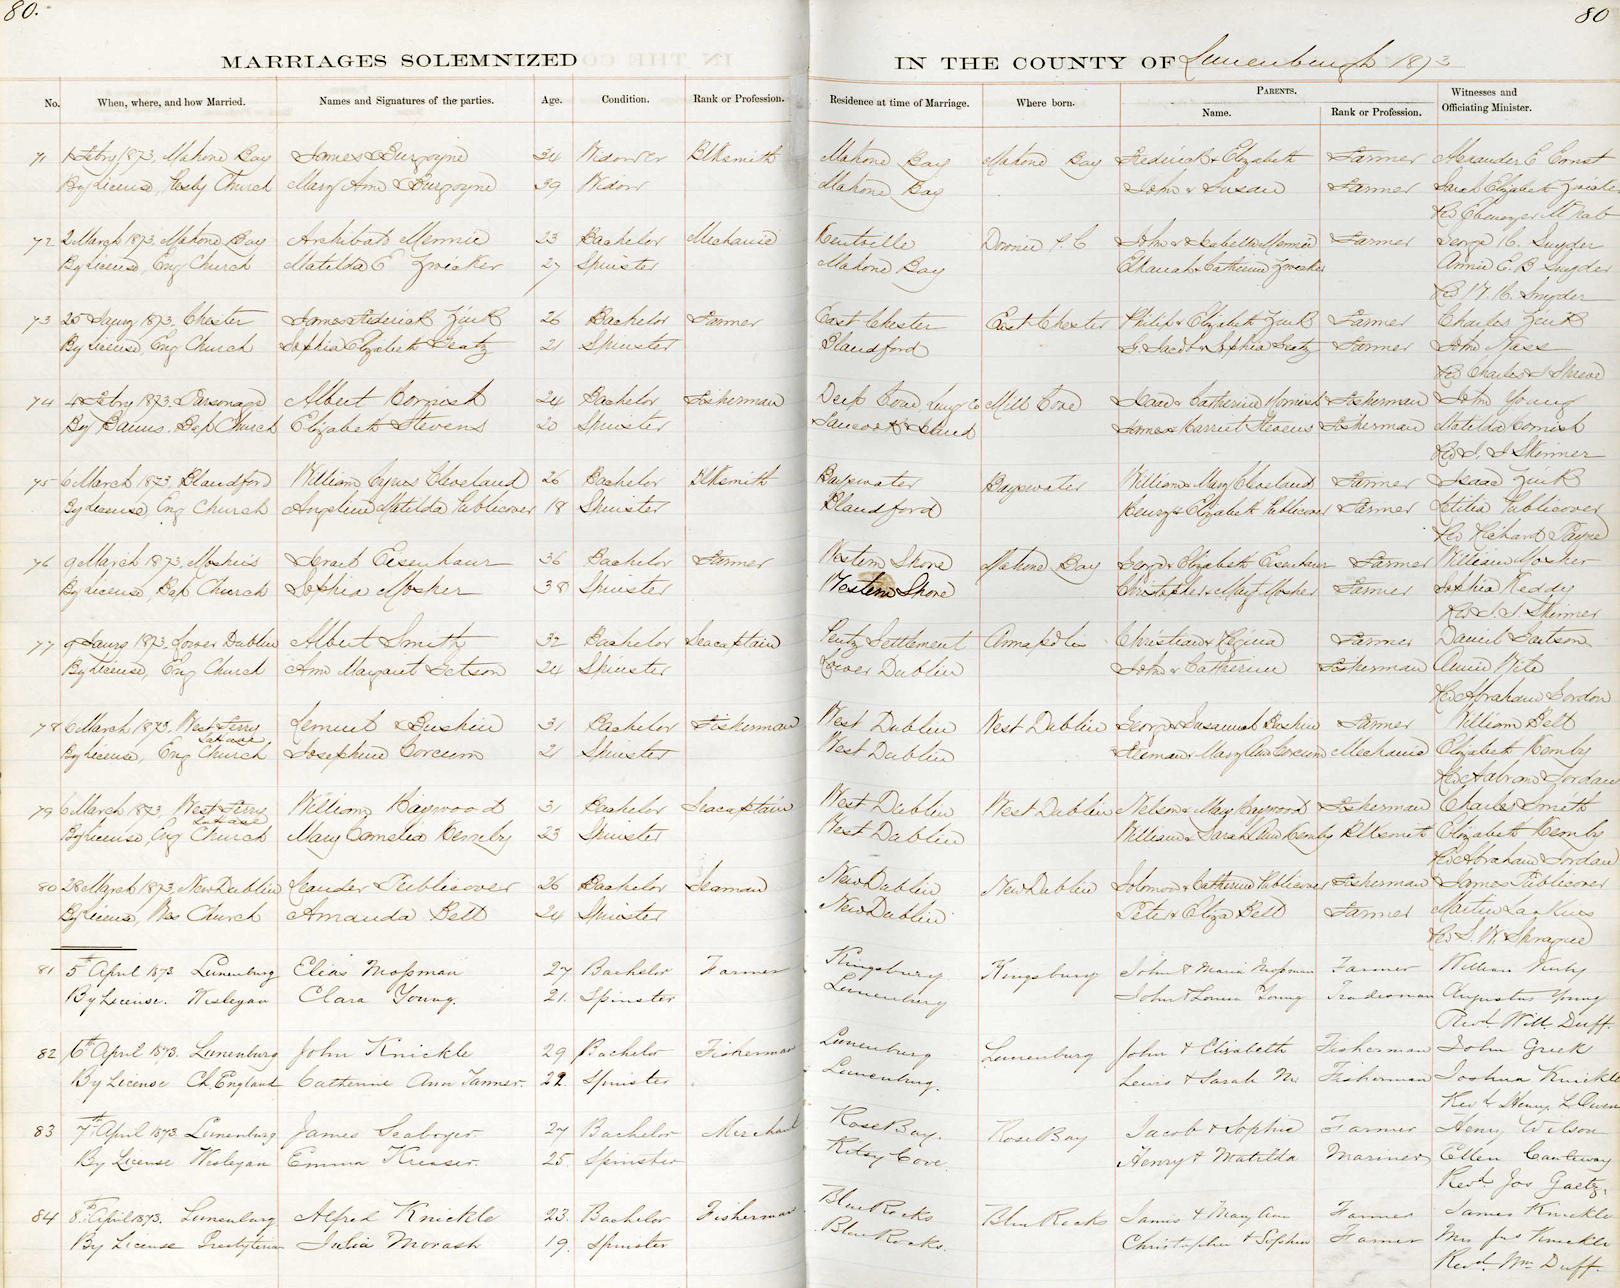 80.
80
MARRIAGES SOLEMNIZED
IN THE COUNTY OF Lunenburgh 1873
No. When, where, and how Married. Names and Signatures of the parties. Age. Condition. Rank or Profession. Residence at time of Marriage. Where born. PARENTS. Witnesses and
Name. Rank or Profession. Officiating Minister.
71 1 Febry 1873, Mahone Bay James Burgoyne 34 Widower Blksmith Mahone Bay Mahone Bay Frederick & Elizabeth Farmer Alexander E Ernst
By License, Presby Church Mary Ann Burgoyne 39 Widow Mahone Bay John & Susan Farmer Sarah Elizabeth Zwicker
Rev Ebenezer McNab
72 2 March 1873, Mahone Bay Archibald Mennie 23 Bachelor Mechanic Kentville Downie P.C John & Isabella Mennie Farmer George H. Snyder
By License, Eng Church Matilda E Zwicker 27 Spinster Mahone Bay Elkanah & Catherine Zwicker Annie E. B Snyder
Rev W. H. Snyder
73 25 Jany 1873, Chester James Frederick Zink 26 Bachelor Farmer East Chester East Chester Philip & Elizabeth Zink Farmer Charles Zink
By License, Eng Church Sophia Elizabeth Seatz 21 Spinster Blandford G. Jacob & Sophia Seatz Farmer John Nass
Rev Charles J Shreve
74 4 Febry 1873, Parsonage Albert Cornish 24 Bachelor Fisherman Deep Cove, Lung Co Mill Cove Isaac & Catherine Cornish Fisherman John Young
By Banns, Bap Church Elizabeth Stevens 20 Spinster Tancook Island James & Harriet Stevens Fisherman Matilda Cornish
Rev I. J Skinner
75 6 March 1873, Blandford William Cyrus Cleveland 26 Bachelor Blksmith Bayswater Bayswater William & Mary Cleveland Farmer Isaac Zink
By License, Eng Church Angelina Matilda Publicover 18 Spinster Blandford Henry & Elizabeth Publicover Farmer Letitia Publicover
Rev Richard Payne
76 9 March 1873, Mosher's Israel Eisenhaur 36 Bachelor Farmer Western Shore Mahone Bay George & Elizabeth Eisenhaur Farmer William Mosher
By License, Bap Church Sophia Mosher 38 Spinster Western Shore Christopher & Mary Mosher Farmer Sophia Keddy
Rev I. J. Skinner
77 9 Jany 1873, Lower Dublin Albert Smith 32 Bachelor Seacaptain Pentz Settlement Annapolis Christian & Regina Farmer Daniel Getson
By License, Eng Church Ann Margaret Getson 24 Spinster Lower Dublin John & Catherine Fisherman Annie Wile
Rev Abraham Jordan
78 6 March 1873, West Ferry LaHave Lemuel Bushen 31 Bachelor Fisherman West Dublin West Dublin George & Susannah Bushen Farmer William Bell
By License, Eng Church Josephine Corcum 21 Spinster West Dublin & Mary Ann Corcum Mechanic Elizabeth Remby
Rev Abram Jordan
79 6 March 1873, West Ferry LaHave William Haywood 31 Bachelor Seacaptain West Dublin West Dublin Nelson & Mary Haywood Fisherman Charles Smith
By License, Eng Church Mary Cornelia Remby 23 Spinster West Dublin William & Sarah Ann Remby Blksmith Elizabeth Remby
Rev Abraham Jordan
80 28 March 1873, New Dublin Leander Publicover 26 Bachelor Seaman New Dublin New Dublin Solomon & Catherine Publicover Fisherman James Publicover
By License, Wes Church Amanda Bell 24 Spinster New Dublin Peter & Eliza Bell Farmer Martin
Rev S. W. Sprague
81 5th April 1873 Lunenburg Elias Mossman 27 Bachelor Farmer Kingsburg Kingsburg John & Maria Mossman Farmer William
By License. Wesleyan Clara Young. 21. Spinster Lunenburg John & Louisa Young Tradesman Augustus Young
Revd. Willm. Duff.
82 6th April 1873. Lunenburg John Knickle 29 Bachelor Fisherman Lunenburg Lunenburg John & Elizabeth Fisherman John Greek
By License Ch. England Catherine Ann Tanner. 22. Spinster Lunenburg. Lewis & Sarah M. Fisherman Joshua Knickle
Revd. Henry L Owen
83 7th April 1873 Lunenburg James Seaboyer 27 Bachelor Merchant Rose Bay. Rose Bay Jacob & Sophia Farmer Henry Wilson
By License Wesleyan Emma Kreaser. 25. Spinster Ritsy Cove. Henry & Matilda Mariner Ellen
Revd. Jos Gaetz.
84 8th April 1873. Lunenburg Alfred Knickle 23. Bachelor Fisherman Blue Rocks Blue Rocks James & Mary Ann Farmer James Knickle
By License Presbyterian Julia Morash 19. Spinster Blue Rocks. Christopher & Sophia Farmer Mrs Jas Knickle
Revd. Wm. Duff.